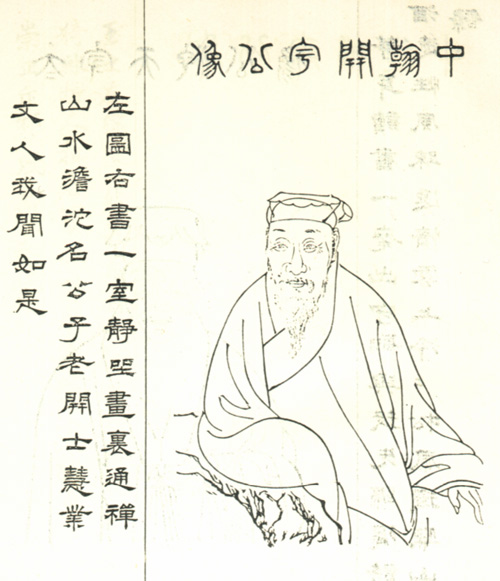 中翰開宇公像
左圖右書一室靜坐畫裏通禪
山水澹沱名公子老開士慧業
文人我聞如是